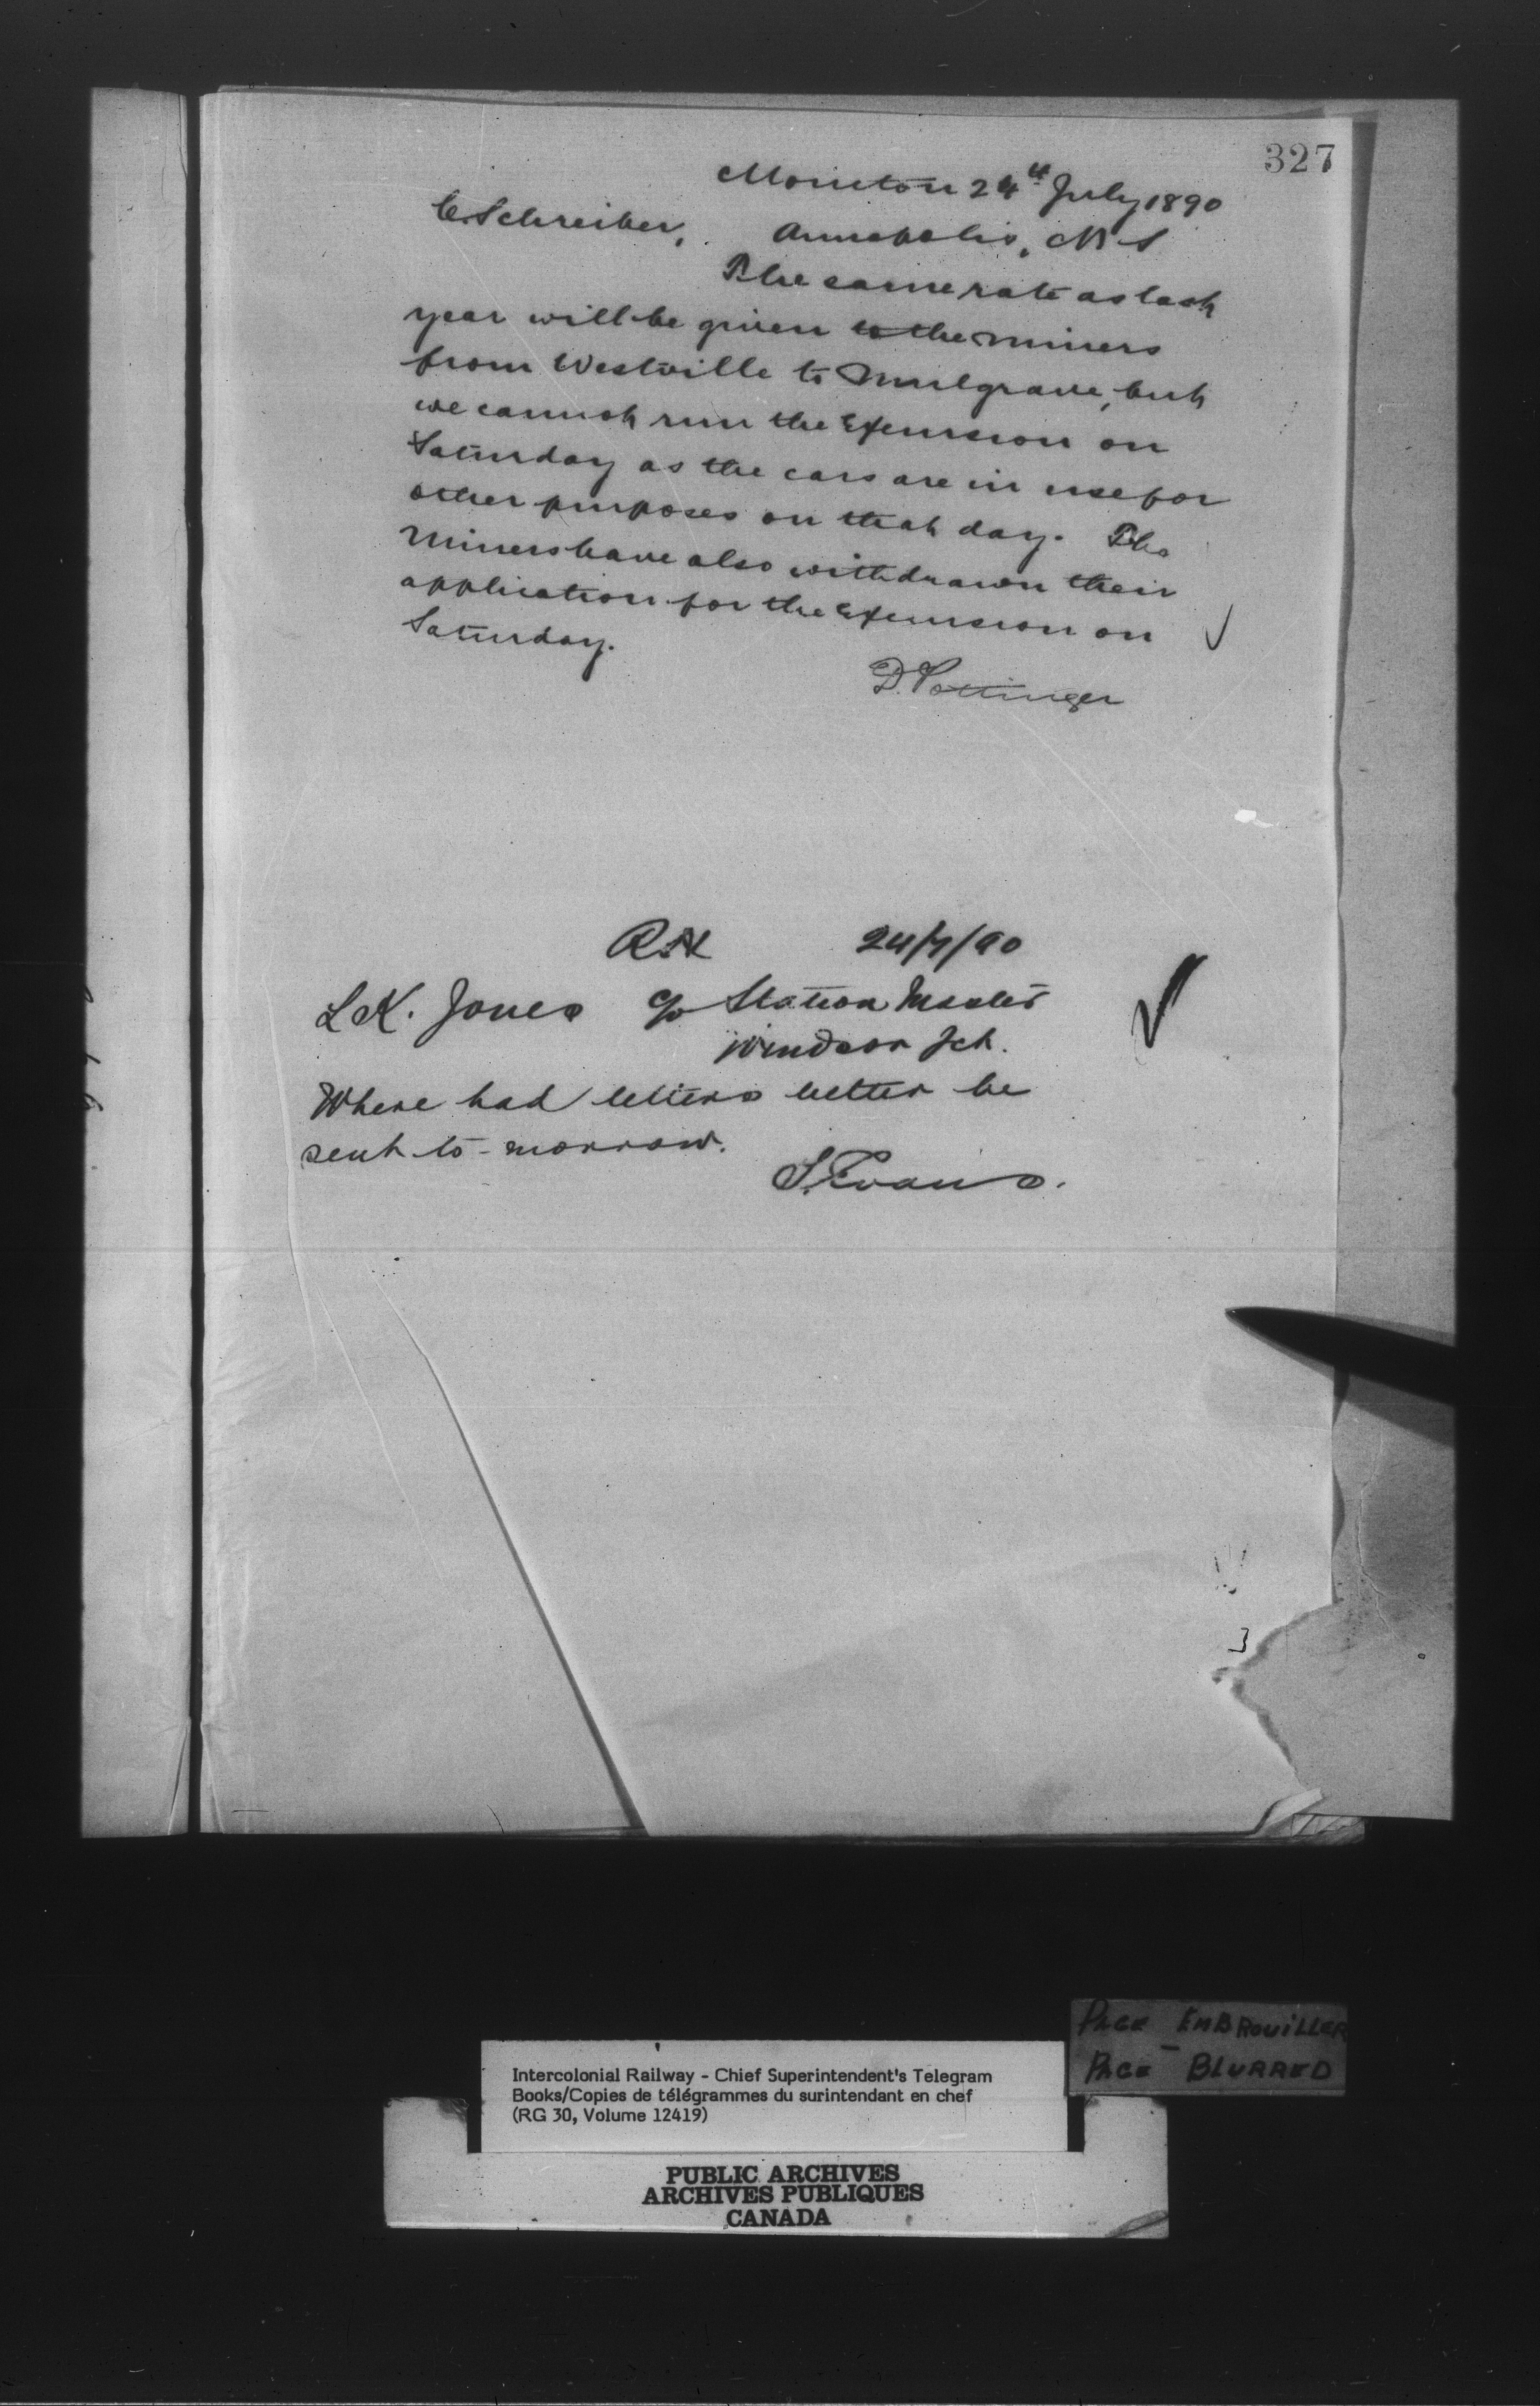 327
Moncton 24th July 1890
C. Schreiber,
Annapolis, N S
The same rate as last
year will be given to the miners
from Westville to Mulgrave, but
we cannot run the Excursion on
Saturday as the cars are in use for
other purposes on that day. The
Miners have also withdrawn their
application for the Excursion on
Saturday.
D. Pottinger
24/7/90
L K. Jones c/o Station Master
Windsor Jct.
Where had letters better be
sent to-morrow.
S. Evans.
PAGE EMBROUILLER
PAGE BLURRED
Intercolonial Railway - Chief Superintendent's Telegram
Books/Copies de télégrammes du surintendant en chef
(RG 30, Volume 12419)
PUBLIC ARCHIVES
ARCHIVES PUBLIQUES
CANADA